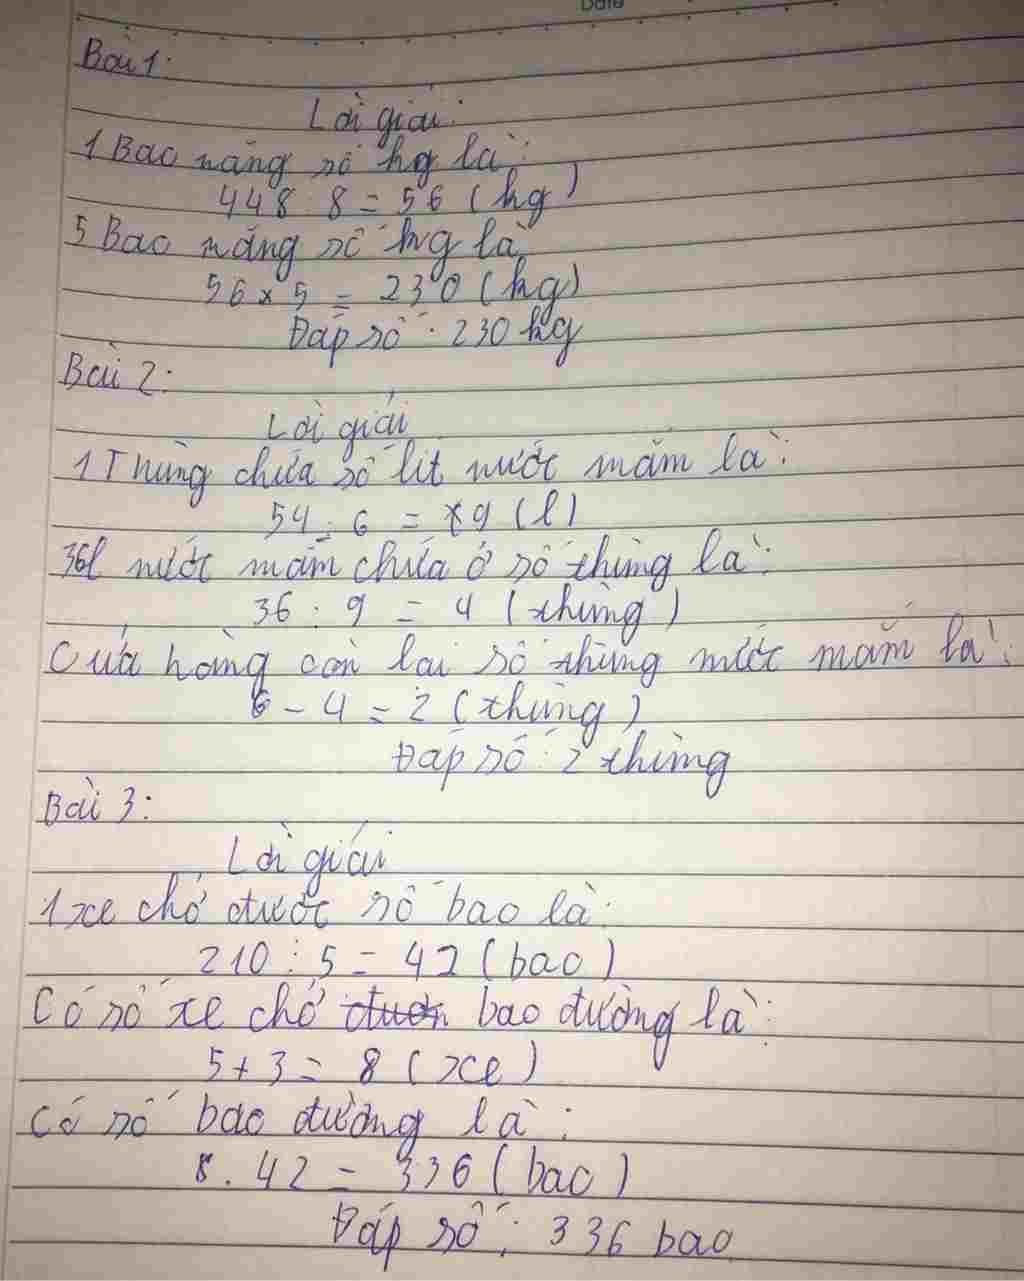 Date
Bài 1:
Lời giải:
1 Bao nặng số kg là:
448 8 = 56 (kg)
5 Bao nặng số kg là
56 x 5 = 230 (kg)
Đáp số: 230 kg
Bài 2:
Lời giải
1 Thùng chứa số lít nước mắm là:
54 : 6 = 9 (l)
36l nước mắm chứa ở số thùng là:
36 : 9 = 4 (thùng)
Cửa hàng còn lại số thùng nước mắm là:
6 - 4 = 2 (thùng)
Đáp số: 2 thùng
Bài 3:
Lời giải
1 xe chở được số bao là:
210 : 5 = 42 (bao)
Có số xe chở bao đường là:
5 + 3 = 8 (xe)
Có số bao đường là:
8 . 42 = 336 (bao)
Đáp số: 336 bao